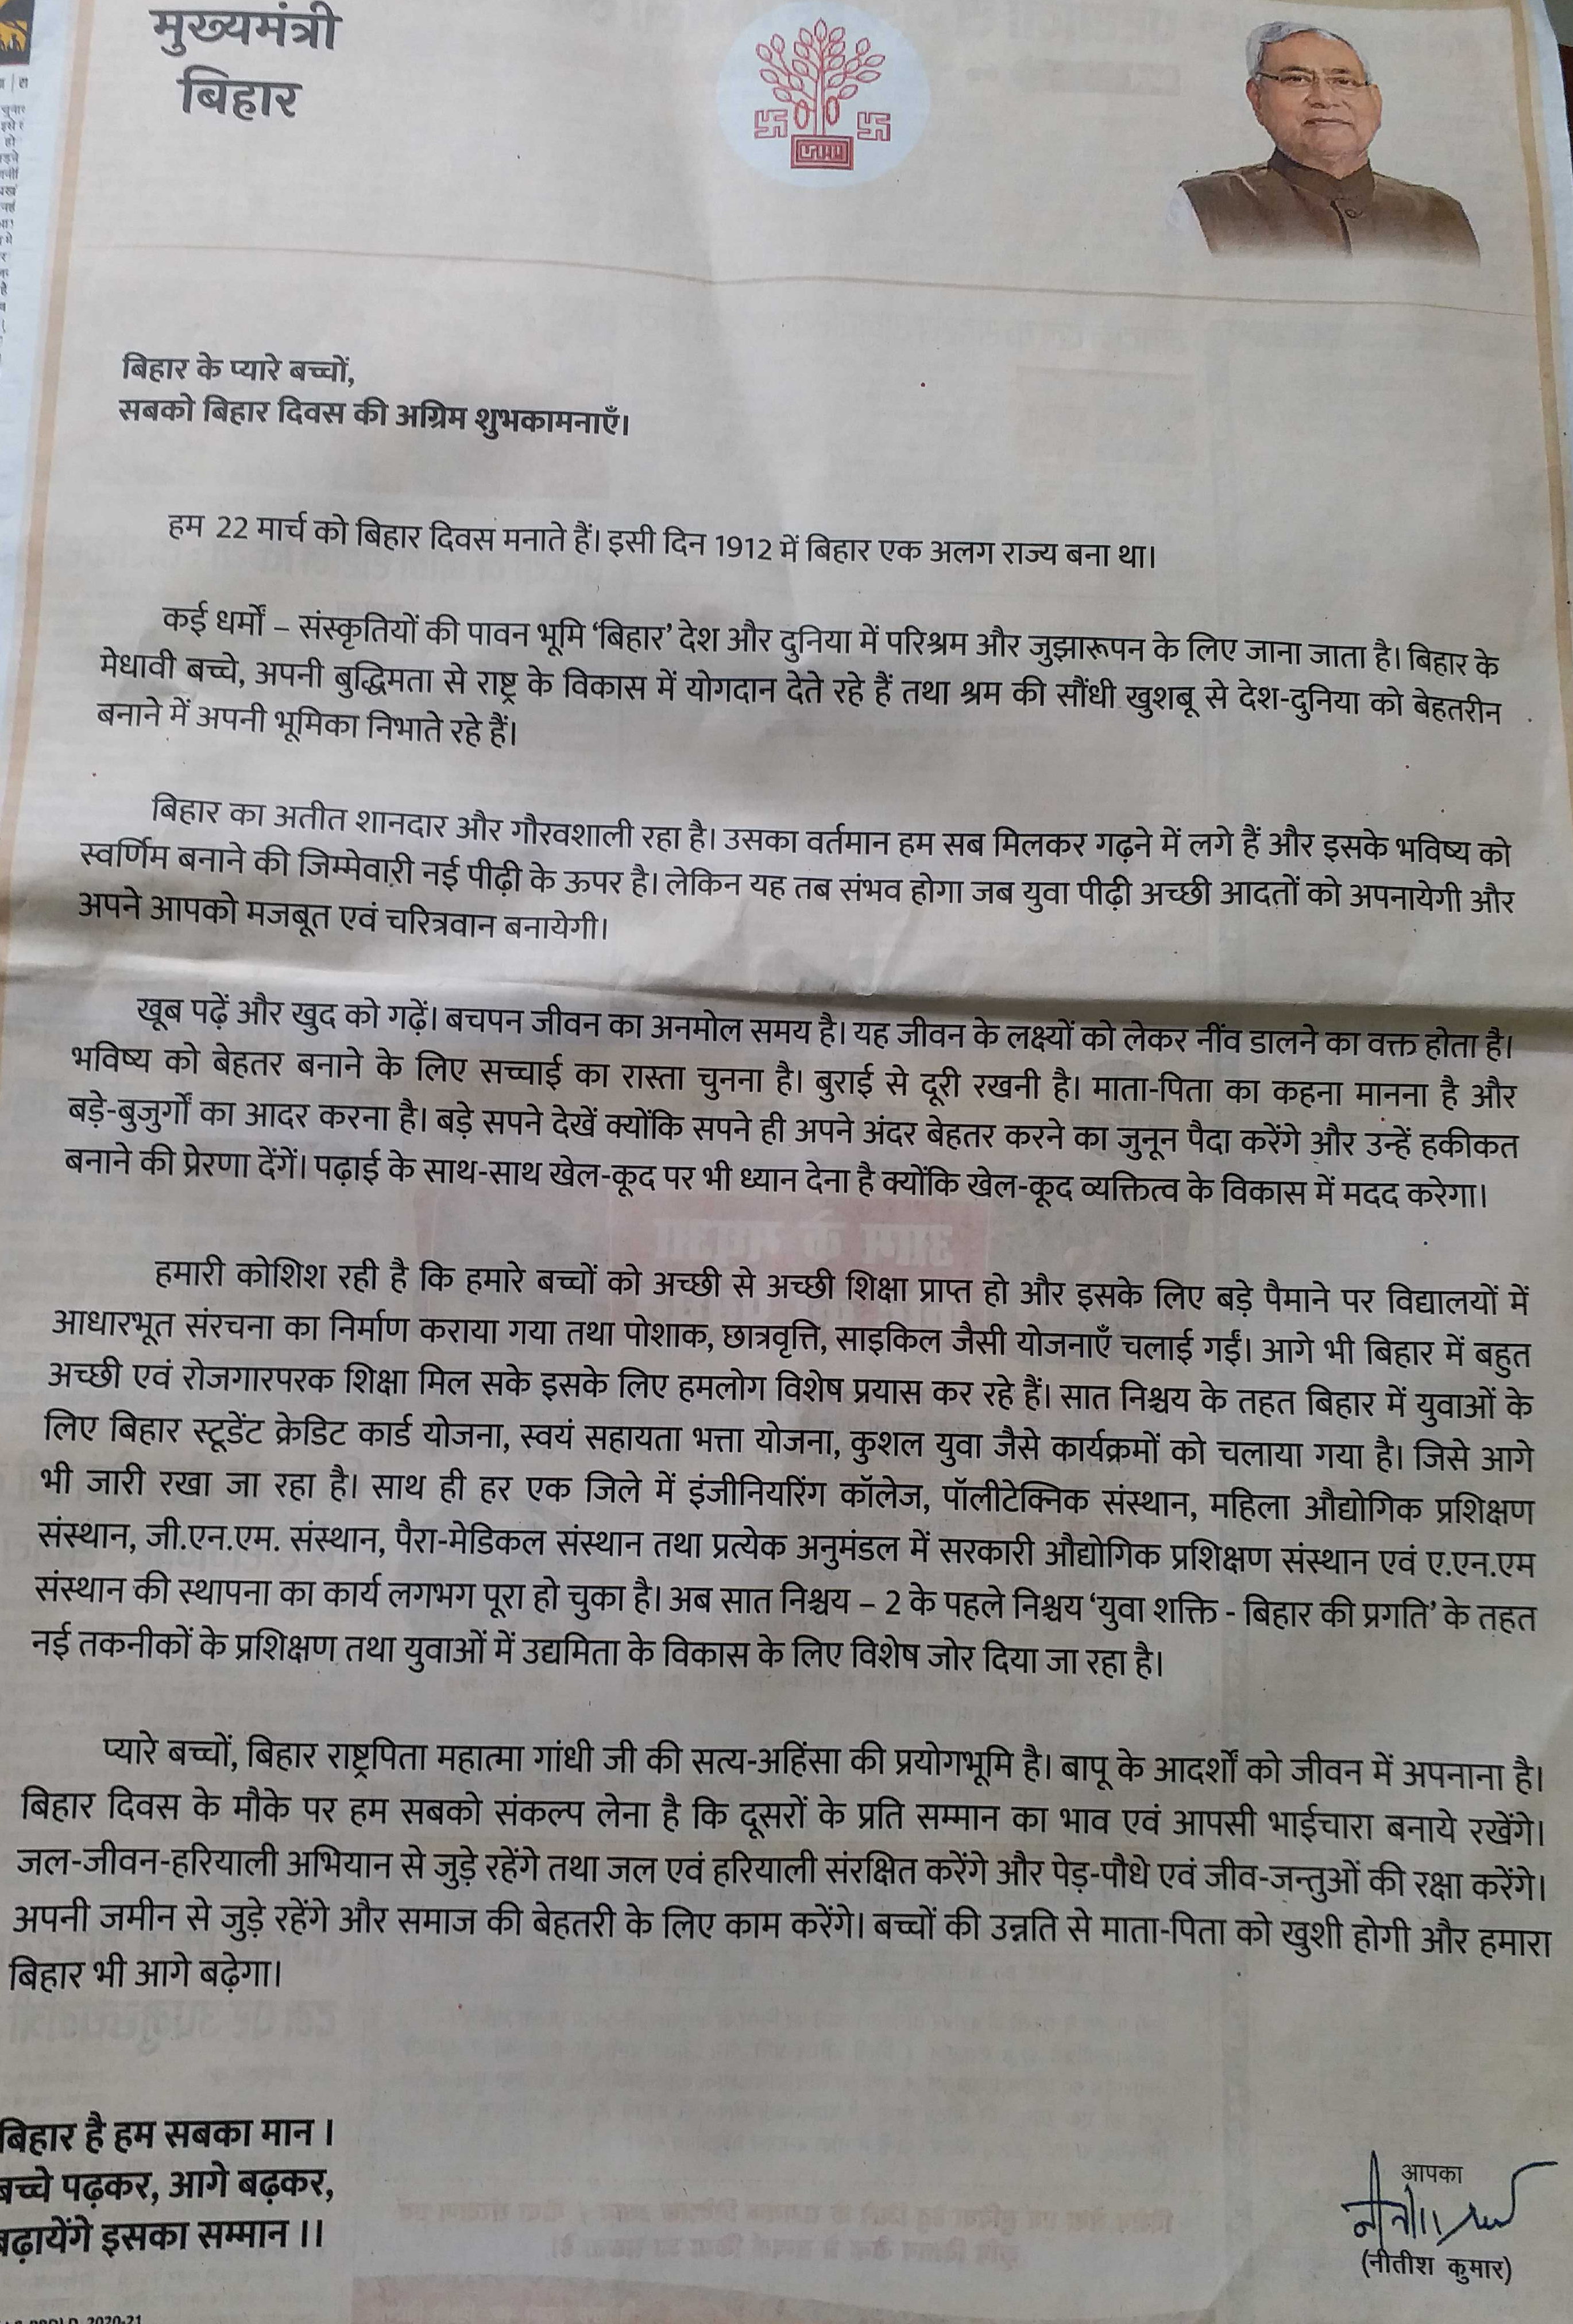 मुख्यमंत्री
बिहार
बिहार के प्यारे बच्चों,
सबको बिहार दिवस की अग्रिम शुभकामनाएँ।
हम 22 मार्च को बिहार दिवस मनाते हैं। इसी दिन 1912 में बिहार एक अलग राज्य बना था।
कई धर्मों – संस्कृतियों की पावन भूमि ‘बिहार’ देश और दुनिया में परिश्रम और जुझारूपन के लिए जाना जाता है। बिहार के
मेधावी बच्चे, अपनी बुद्धिमता से राष्ट्र के विकास में योगदान देते रहे हैं तथा श्रम की सौंधी खुशबू से देश-दुनिया को बेहतरीन
बनाने में अपनी भूमिका निभाते रहे हैं।
बिहार का अतीत शानदार और गौरवशाली रहा है। उसका वर्तमान हम सब मिलकर गढ़ने में लगे हैं और इसके भविष्य को
स्वर्णिम बनाने की जिम्मेवारी नई पीढ़ी के ऊपर है। लेकिन यह तब संभव होगा जब युवा पीढ़ी अच्छी आदतों को अपनायेगी और
अपने आपको मजबूत एवं चरित्रवान बनायेगी।
खूब पढ़ें और खुद को गढ़ें। बचपन जीवन का अनमोल समय है। यह जीवन के लक्ष्यों को लेकर नींव डालने का वक्त होता है।
भविष्य को बेहतर बनाने के लिए सच्चाई का रास्ता चुनना है। बुराई से दूरी रखनी है। माता-पिता का कहना मानना है और
बड़े-बुजुर्गों का आदर करना है। बड़े सपने देखें क्योंकि सपने ही अपने अंदर बेहतर करने का जुनून पैदा करेंगे और उन्हें हकीकत
बनाने की प्रेरणा देंगें। पढ़ाई के साथ-साथ खेल-कूद पर भी ध्यान देना है क्योंकि खेल-कूद व्यक्तित्व के विकास में मदद करेगा।
हमारी कोशिश रही है कि हमारे बच्चों को अच्छी से अच्छी शिक्षा प्राप्त हो और इसके लिए बड़े पैमाने पर विद्यालयों में
आधारभूत संरचना का निर्माण कराया गया तथा पोशाक, छात्रवृत्ति, साइकिल जैसी योजनाएँ चलाई गईं। आगे भी बिहार में बहुत
अच्छी एवं रोजगारपरक शिक्षा मिल सके इसके लिए हमलोग विशेष प्रयास कर रहे हैं। सात निश्चय के तहत बिहार में युवाओं के
लिए बिहार स्टूडेंट क्रेडिट कार्ड योजना, स्वयं सहायता भत्ता योजना, कुशल युवा जैसे कार्यक्रमों को चलाया गया है। जिसे आगे
भी जारी रखा जा रहा है। साथ ही हर एक जिले में इंजीनियरिंग कॉलेज, पॉलीटेक्निक संस्थान, महिला औद्योगिक प्रशिक्षण
संस्थान, जी.एन.एम. संस्थान, पैरा-मेडिकल संस्थान तथा प्रत्येक अनुमंडल में सरकारी औद्योगिक प्रशिक्षण संस्थान एवं ए.एन.एम
संस्थान की स्थापना का कार्य लगभग पूरा हो चुका है। अब सात निश्चय – 2 के पहले निश्चय ‘युवा शक्ति - बिहार की प्रगति’ के तहत
नई तकनीकों के प्रशिक्षण तथा युवाओं में उद्यमिता के विकास के लिए विशेष जोर दिया जा रहा है।
प्यारे बच्चों, बिहार राष्ट्रपिता महात्मा गांधी जी की सत्य-अहिंसा की प्रयोगभूमि है। बापू के आदर्शों को जीवन में अपनाना है।
बिहार दिवस के मौके पर हम सबको संकल्प लेना है कि दूसरों के प्रति सम्मान का भाव एवं आपसी भाईचारा बनाये रखेंगे।
जल-जीवन-हरियाली अभियान से जुड़े रहेंगे तथा जल एवं हरियाली संरक्षित करेंगे और पेड़-पौधे एवं जीव-जन्तुओं की रक्षा करेंगे।
अपनी जमीन से जुड़े रहेंगे और समाज की बेहतरी के लिए काम करेंगे। बच्चों की उन्नति से माता-पिता को खुशी होगी और हमारा
बिहार भी आगे बढ़ेगा।
बिहार है हम सबका मान ।
बच्चे पढ़कर, आगे बढ़कर,
बढ़ायेंगे इसका सम्मान ।।
आपका
(नीतीश कुमार)
2020-21